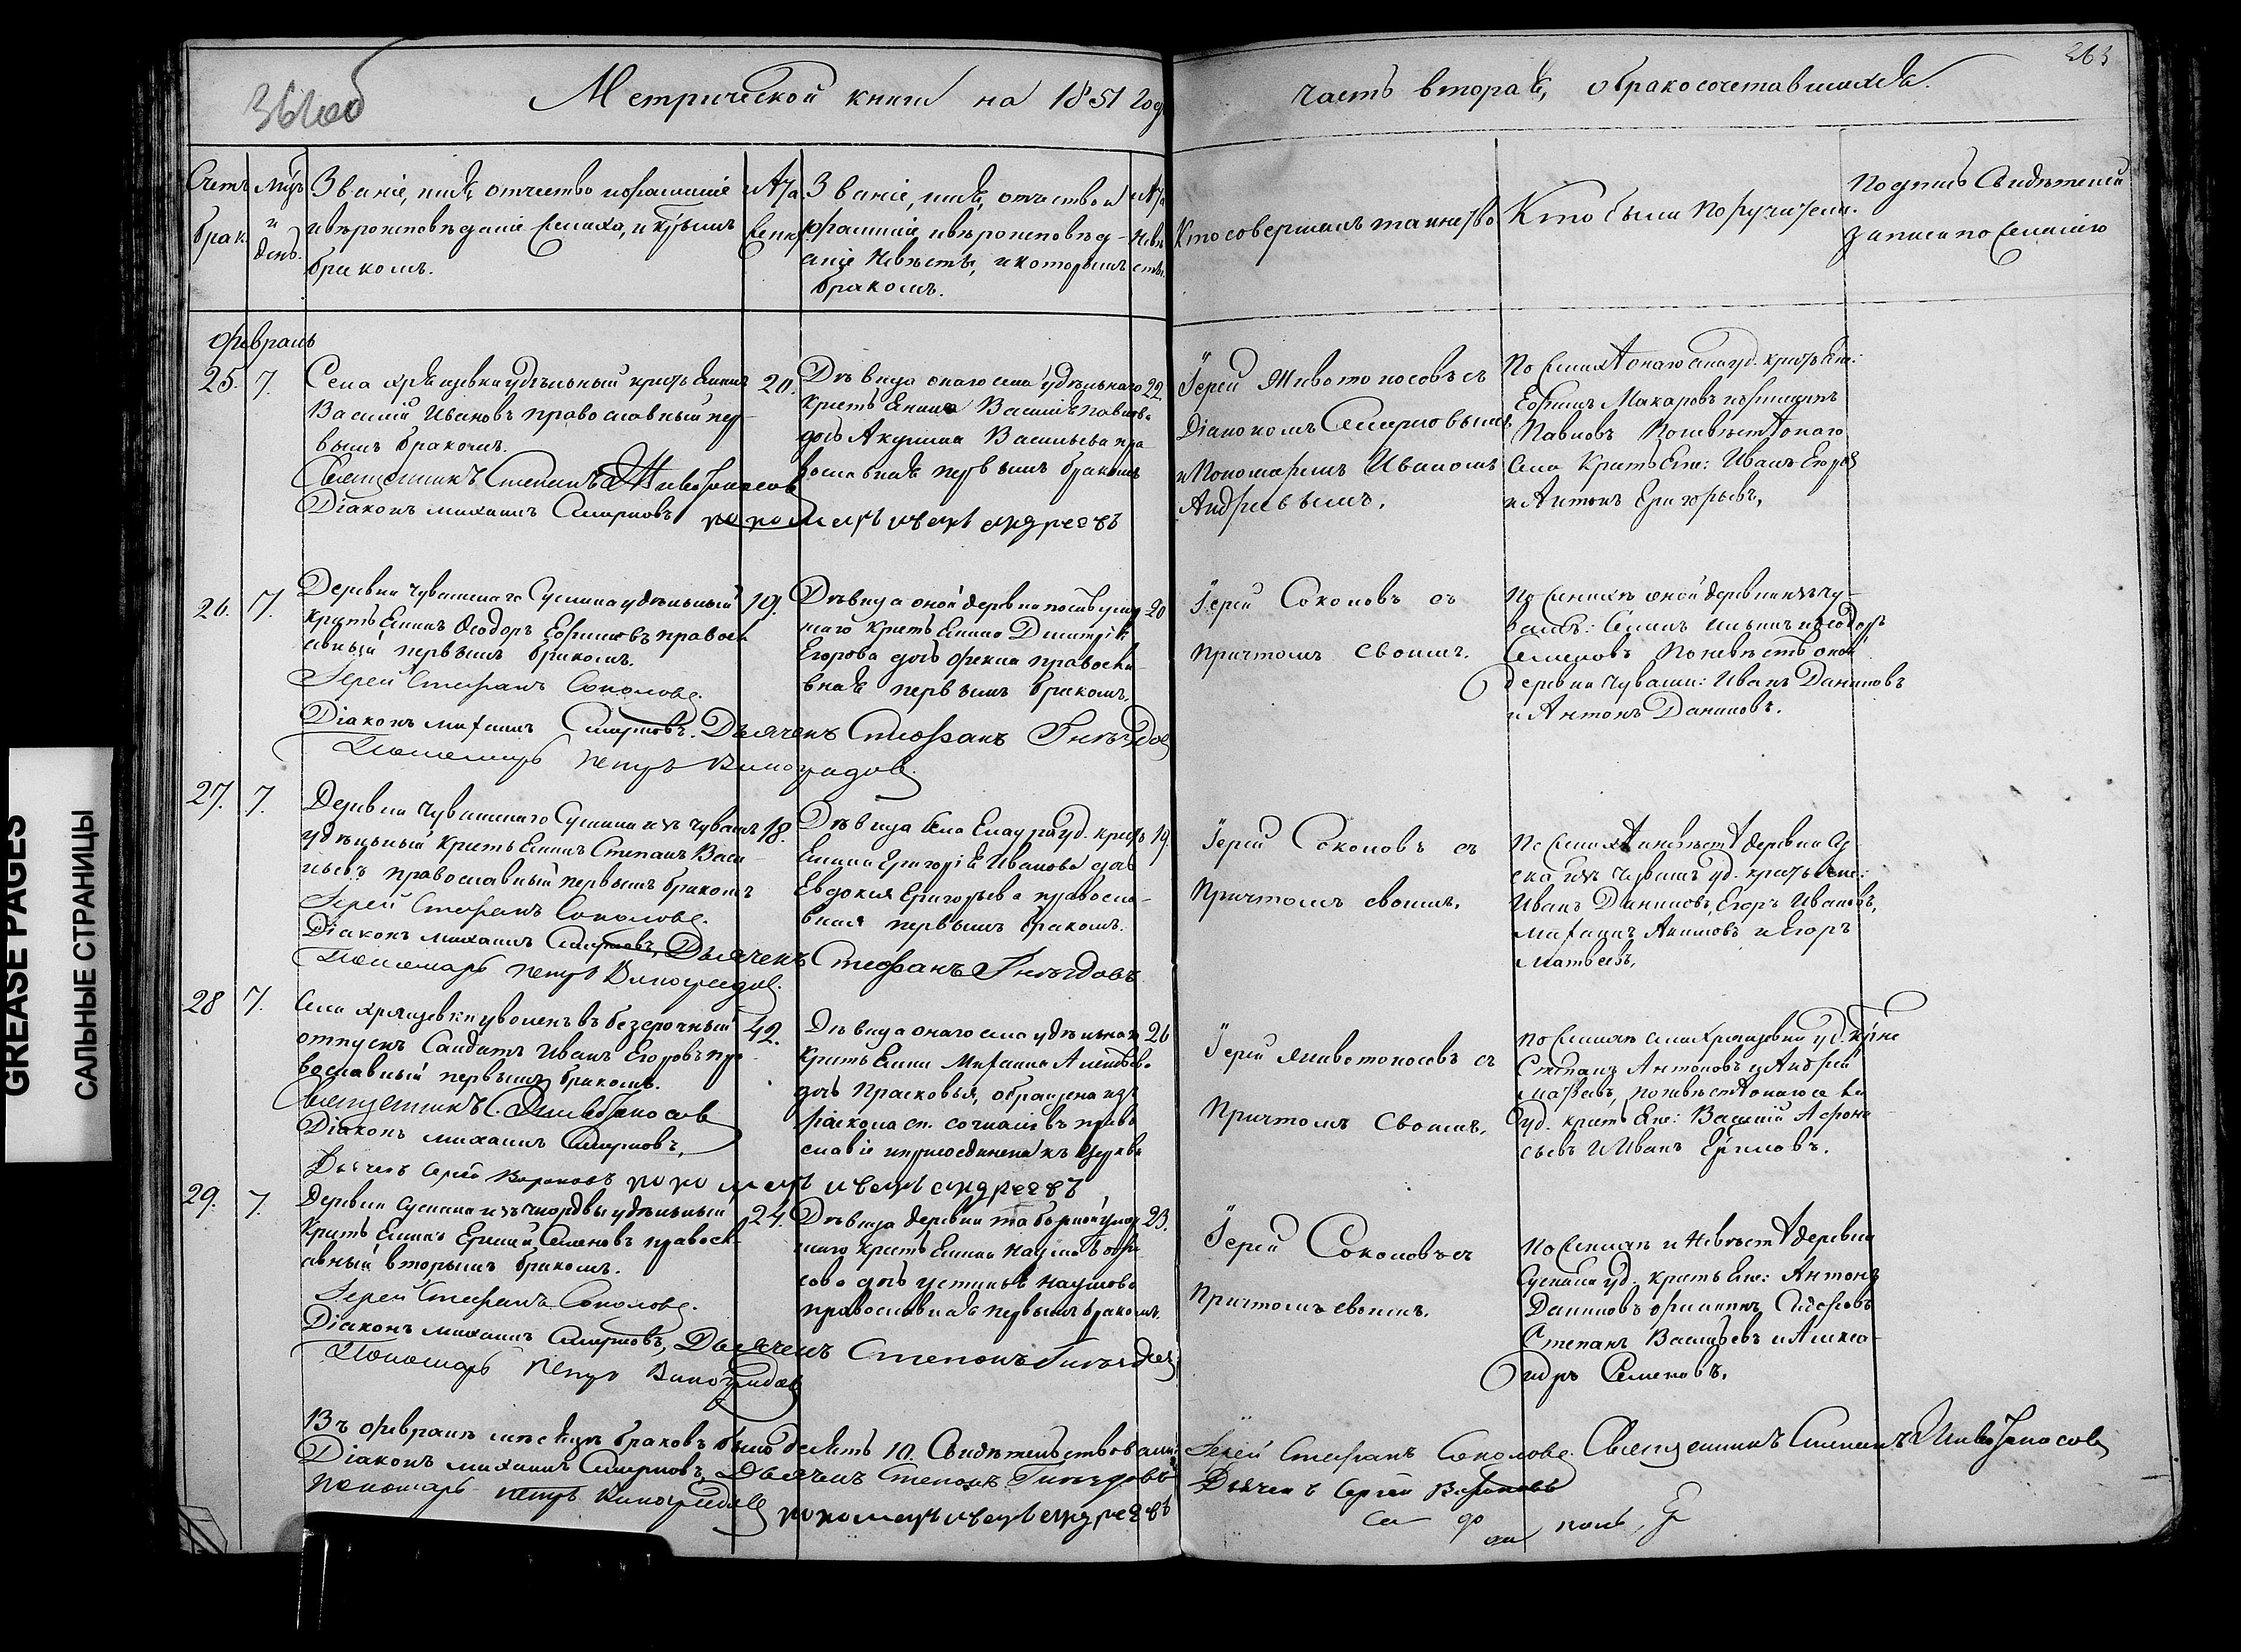 263
Метрической книги на 1851 годъ
часть вторая, о бракосочетавшихся.
Счетъ брак.
Мцъ и день.
Званіе, имя, отчество и фамилія
и вѣроисповѣданіе жениха, и
бракомъ.
Званіе, имя, отчество и
фамилія, и вѣроисповѣд-
аніе невѣсты, и которымъ
бракомъ.
Кто совершалъ таинство
Кто были поручители.
Подпись свидѣтелей
записи по желанію
Февраль
25. 7.
Села Хрящевки удѣльный крестьянинъ
Василій Ивановъ православный пер-
вымъ бракомъ.
Священникъ Стефанъ Животоносовъ
Діаконъ Михаилъ Смирновъ
пономарь Иванъ Андреевъ
20.
Дѣвица онаго села удѣльнаго
крестьянина Василія Павлова
дочь Акулина Васильева пра-
вославная первымъ бракомъ
22.
Іерей Животоносовъ съ
Діакономъ Смирновымъ
и Пономаремъ Иваномъ
Андреевымъ.
По женихѣ онаго села уд. крестьяне:
Ефимъ Макаровъ
Павловъ По невѣстѣ онаго
села крестьяне: Иванъ Егоровъ
и Антонъ Григорьевъ,
26. 7.
Деревни Чувашскаго Сускана удѣльный
крестьянинъ Ѳеодоръ Ефимовъ правосл-
авный первымъ бракомъ.
Іерей Стефанъ Соколовъ.
Діаконъ Михаилъ Смирновъ. Дьячекъ Стефанъ Гнѣздовъ
Пономарь Петръ Виноградовъ.
19.
Дѣвица оной деревни
крестьянина Дмитрія
Егорова дочь Фекла правосла-
вная первымъ бракомъ.
20
Іерей Соколовъ съ
причтомъ своимъ.
По женихѣ оной деревни изъ чу-
вашъ: Семенъ Ильинъ и Ѳеодоръ
Семеновъ По невѣстѣ оной
деревни чуваши: Иванъ Даниловъ
и Антонъ Даниловъ.
27. 7.
Деревни Чувашскаго Сускана изъ чувашъ
удѣльный крестьянинъ Степанъ Васи-
льевъ православный первымъ бракомъ
Іерей Стефанъ Соколовъ.
Діаконъ Михаилъ Смирновъ, Дьячекъ Стефанъ Гнѣздовъ
Пономарь Петръ Виноградовъ.
18.
Дѣвица села Елаура уд. кресть-
янина Григорія Иванова дочь
Евдокія Григорьева правосла-
вная первымъ бракомъ.
19.
Іерей Соколовъ съ
Причтомъ своимъ.
По женихѣ и невѣстѣ деревни Су-
скана изъ чувашъ уд. крестьяне:
Иванъ Даниловъ, Егоръ Ивановъ,
Михаилъ Акимовъ и Егоръ
Матвѣевъ,
28 7.
Села Хрящевки уволенъ въ безсрочный
отпускъ Солдатъ Иванъ Егоровъ пра-
вославный первымъ бракомъ.
Священникъ С. Животоносовъ
Діаконъ Михаилъ Смирновъ,
Дьячекъ Сергей пономарь Иванъ Андреевъ
42.
Дѣвица онаго села удѣльнаго
крестьянина Михаила
дочь Прасковья, обращена изъ
раскола въ право-
славіе и присоединена къ Церкви
26
Іерей Животоносовъ съ
Причтомъ своимъ.
По женихѣ села Хрящевки уд. кр-не
Степанъ Антоновъ и Андрей
по невѣстѣ онаго села
уд. крестьяне: Василій Афона-
сьевъ и Иванъ
29. 7.
Деревни Сускана изъ мордвы удѣльный
крестьянинъ Семеновъ правосл-
авный вторымъ бракомъ.
Іерей Стефанъ Соколовъ.
Діаконъ Михаилъ Смирновъ, Дьячекъ Степанъ Гнѣздовъ
Пономарь Петръ Виноградовъ
24.
Дѣвица деревни
крестьянина Наума Бори-
сова дочь Устинья Наумова
православная первымъ бракомъ.
23.
Іерей Соколовъ съ
Причтомъ своимъ.
По женихѣ и невѣстѣ деревни
Сускана уд. крестьяне: Антонъ
Даниловъ Филиппъ
Степанъ Васильевъ и Алекса-
ндръ Семеновъ.
Въ февралѣ мѣсяцѣ браковъ было десять 10. Свидѣтельствовали:
Іерей Стефанъ Соколовъ Священникъ Стефанъ Животоносовъ
Діаконъ Михаилъ Смирновъ, Дьячекъ Степанъ Гнѣздовъ
Дьячекъ Сергей
Пономарь Петръ Виноградовъ
пономарь Иванъ Андреевъ
GREASE PAGES
САЛЬНЫЕ СТРАНИЦЫ